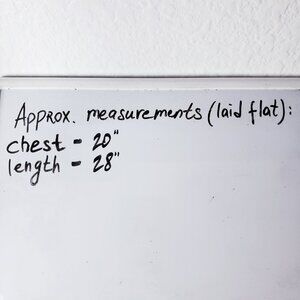 Approx. measurements (laid flat):
chest - 20"
length - 28"